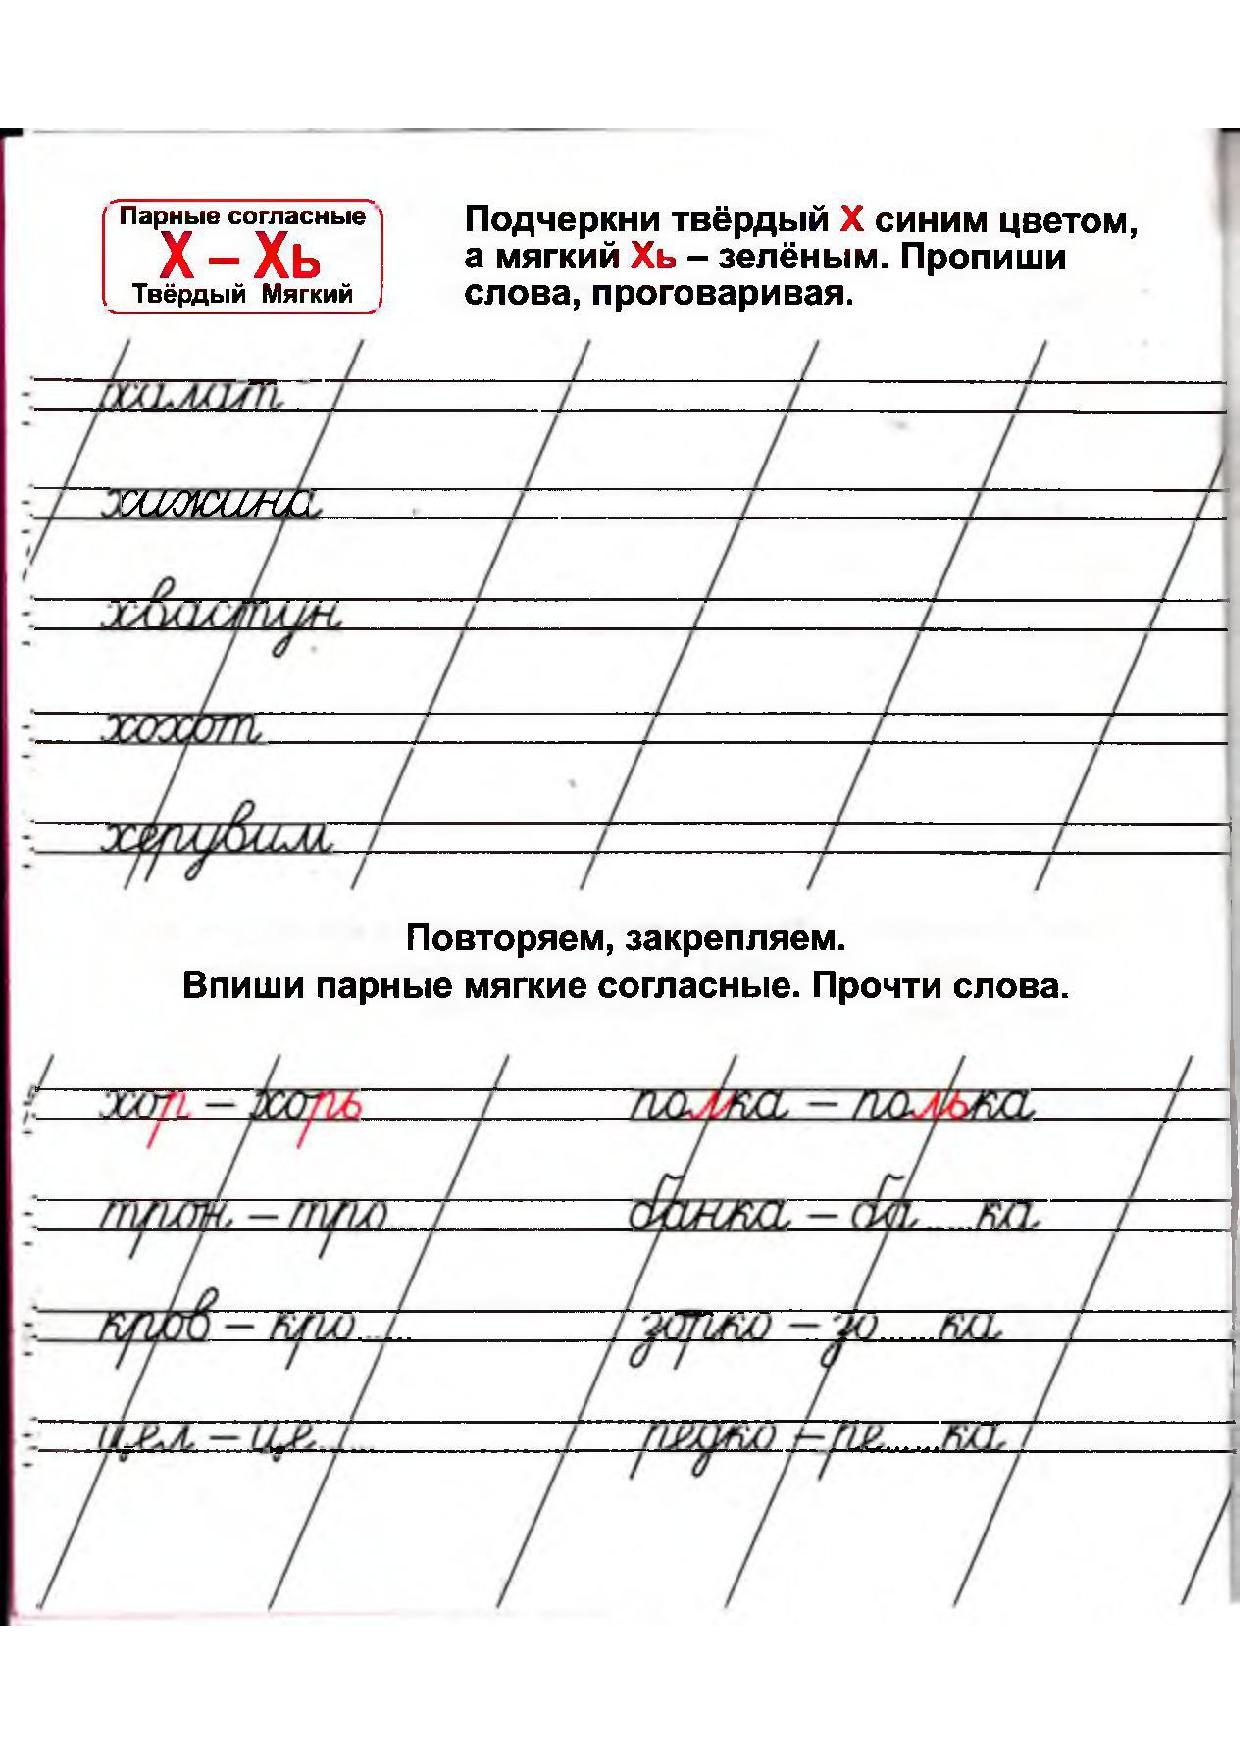 Парные согласные
Х – Хь
Твёрдый Мягкий
Подчеркни твёрдый Х синим цветом,
а мягкий Хь – зелёным. Пропиши
слова, проговаривая.
халат
хижина
хвастун
хохот
херувим
Повторяем, закрепляем.
Впиши парные мягкие согласные. Прочти слова.
хор – хорь полка – полька
трон – тро банка – ба......ка
кров – кро...... зорко – зо......ка
цел – це...... редко – ре......ка